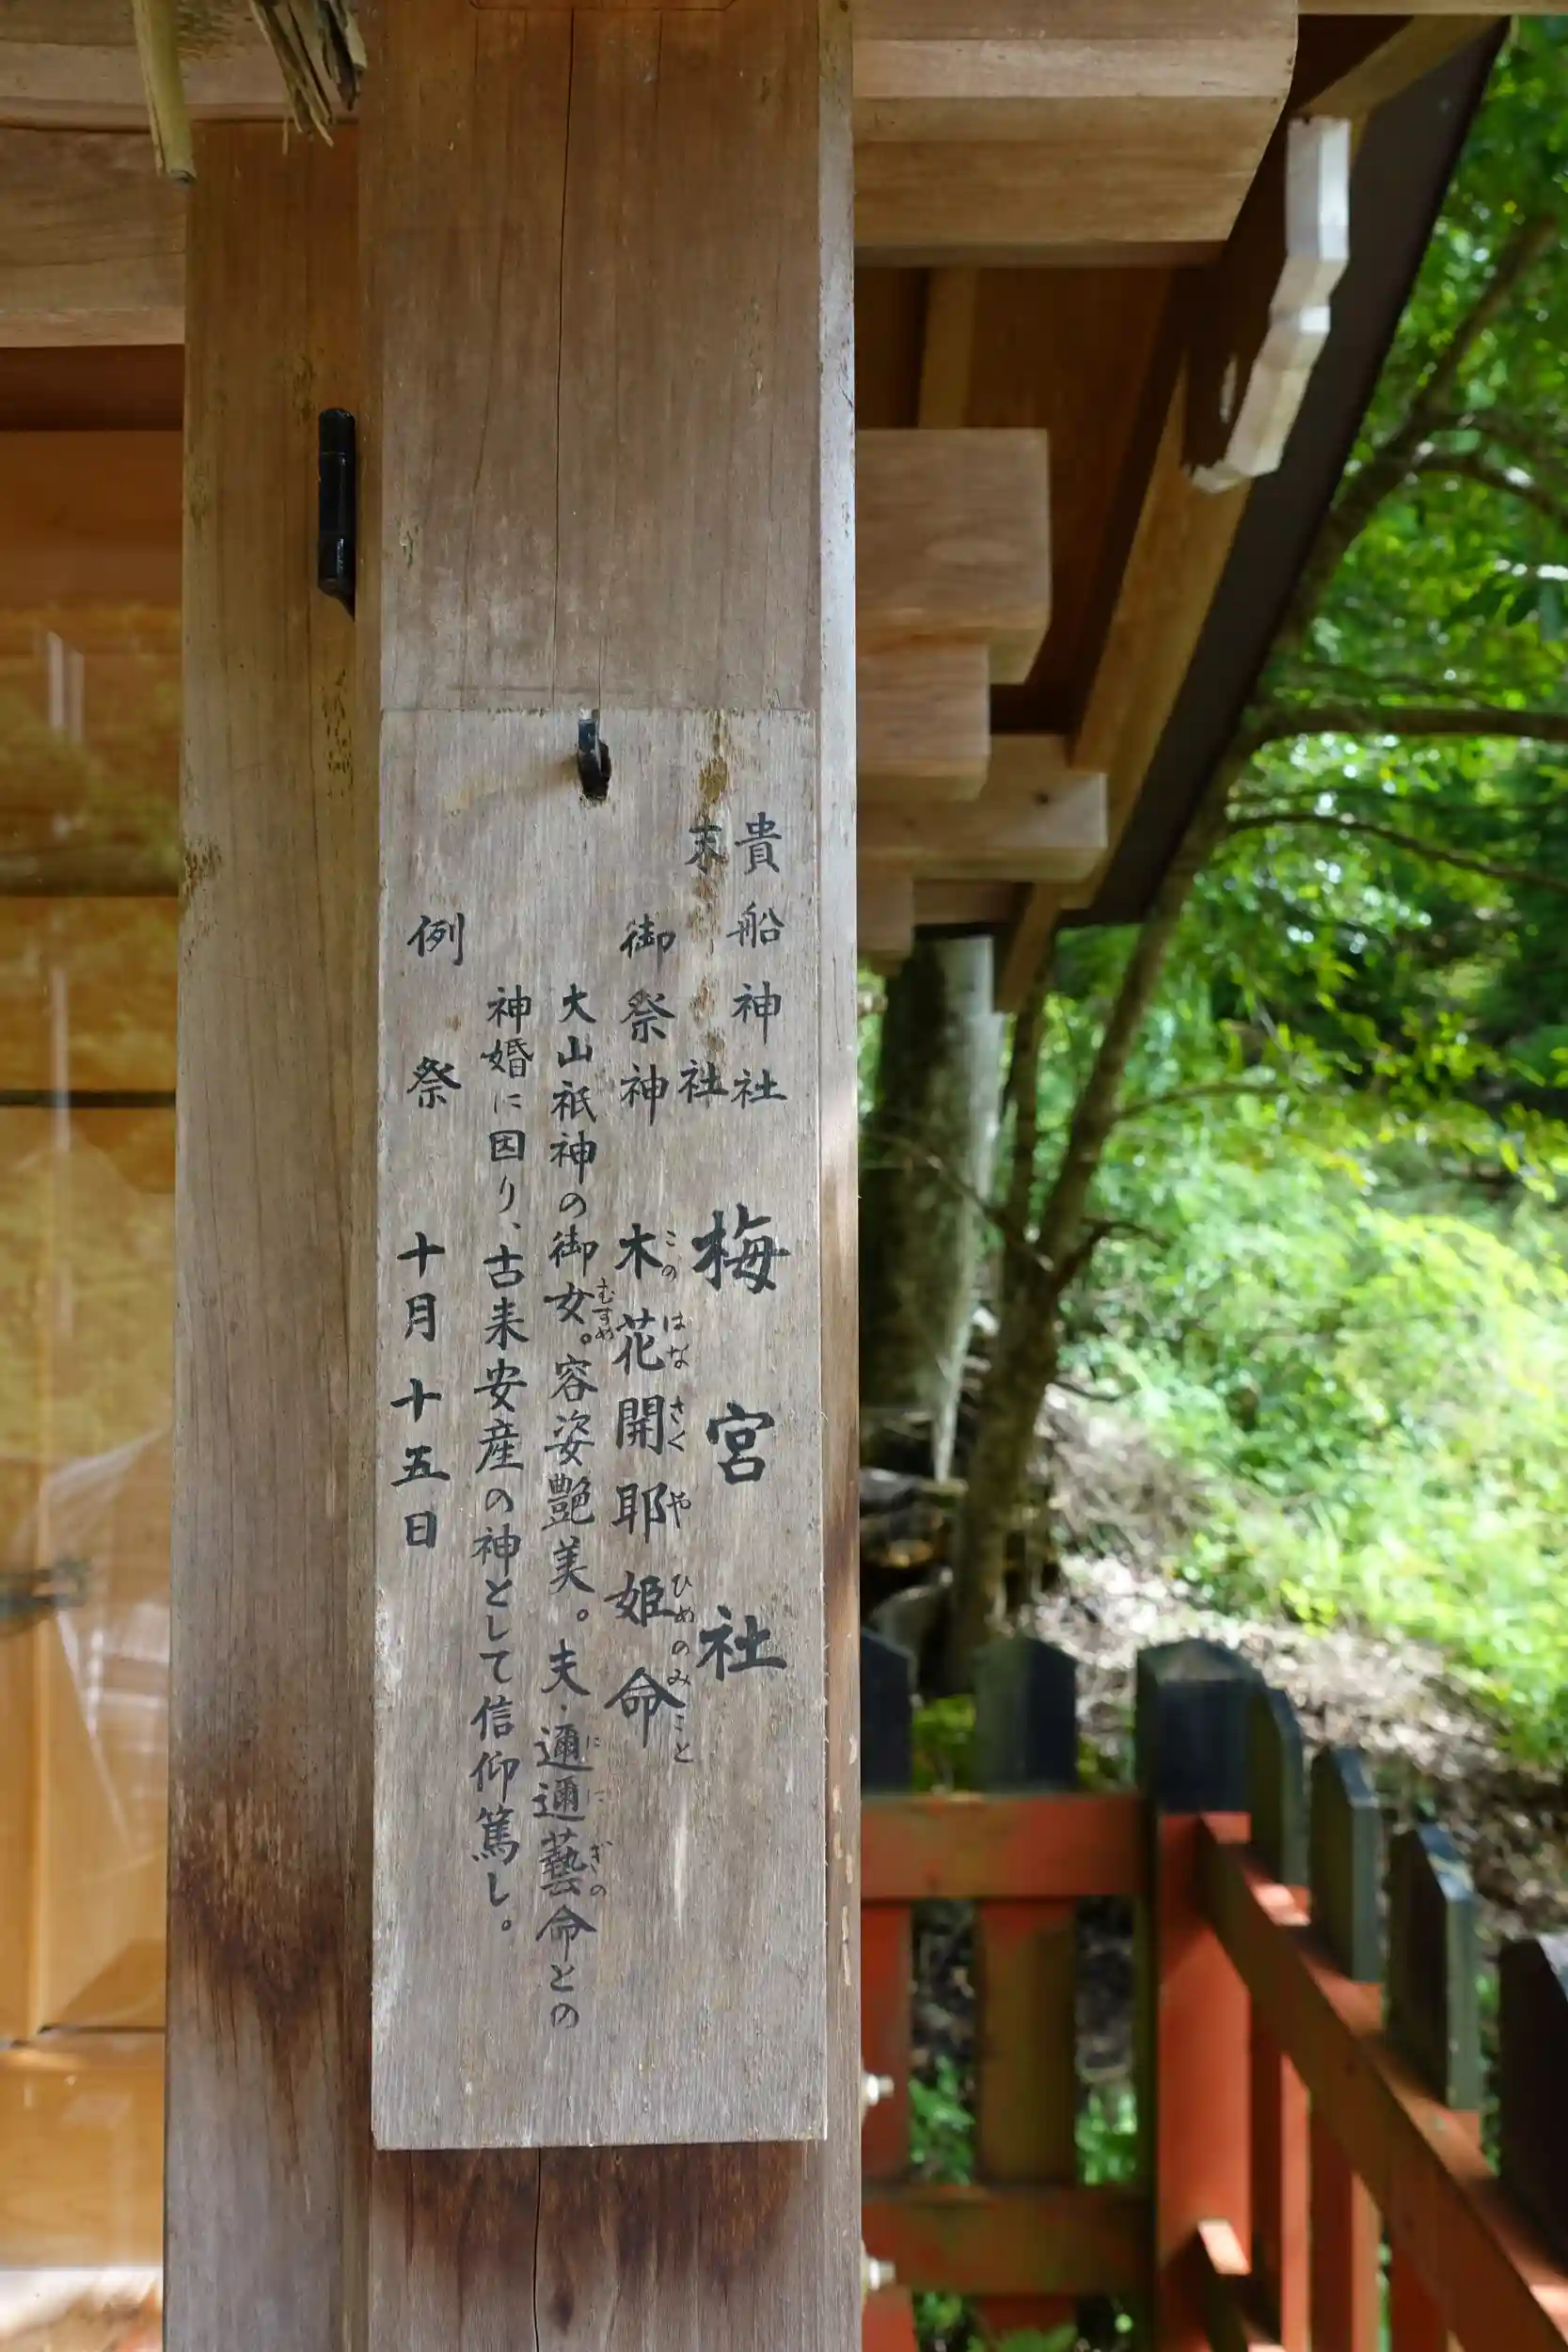 貴船神社
末社
梅宮社
御祭神 木花開耶姫命
このはなさくやひめのみこと
大山祇神の御女。容姿艶美。夫・邇邇藝命との
むすめ
ににぎの
神婚に因り、古来安産の神として信仰篤し。
例祭 十月十五日